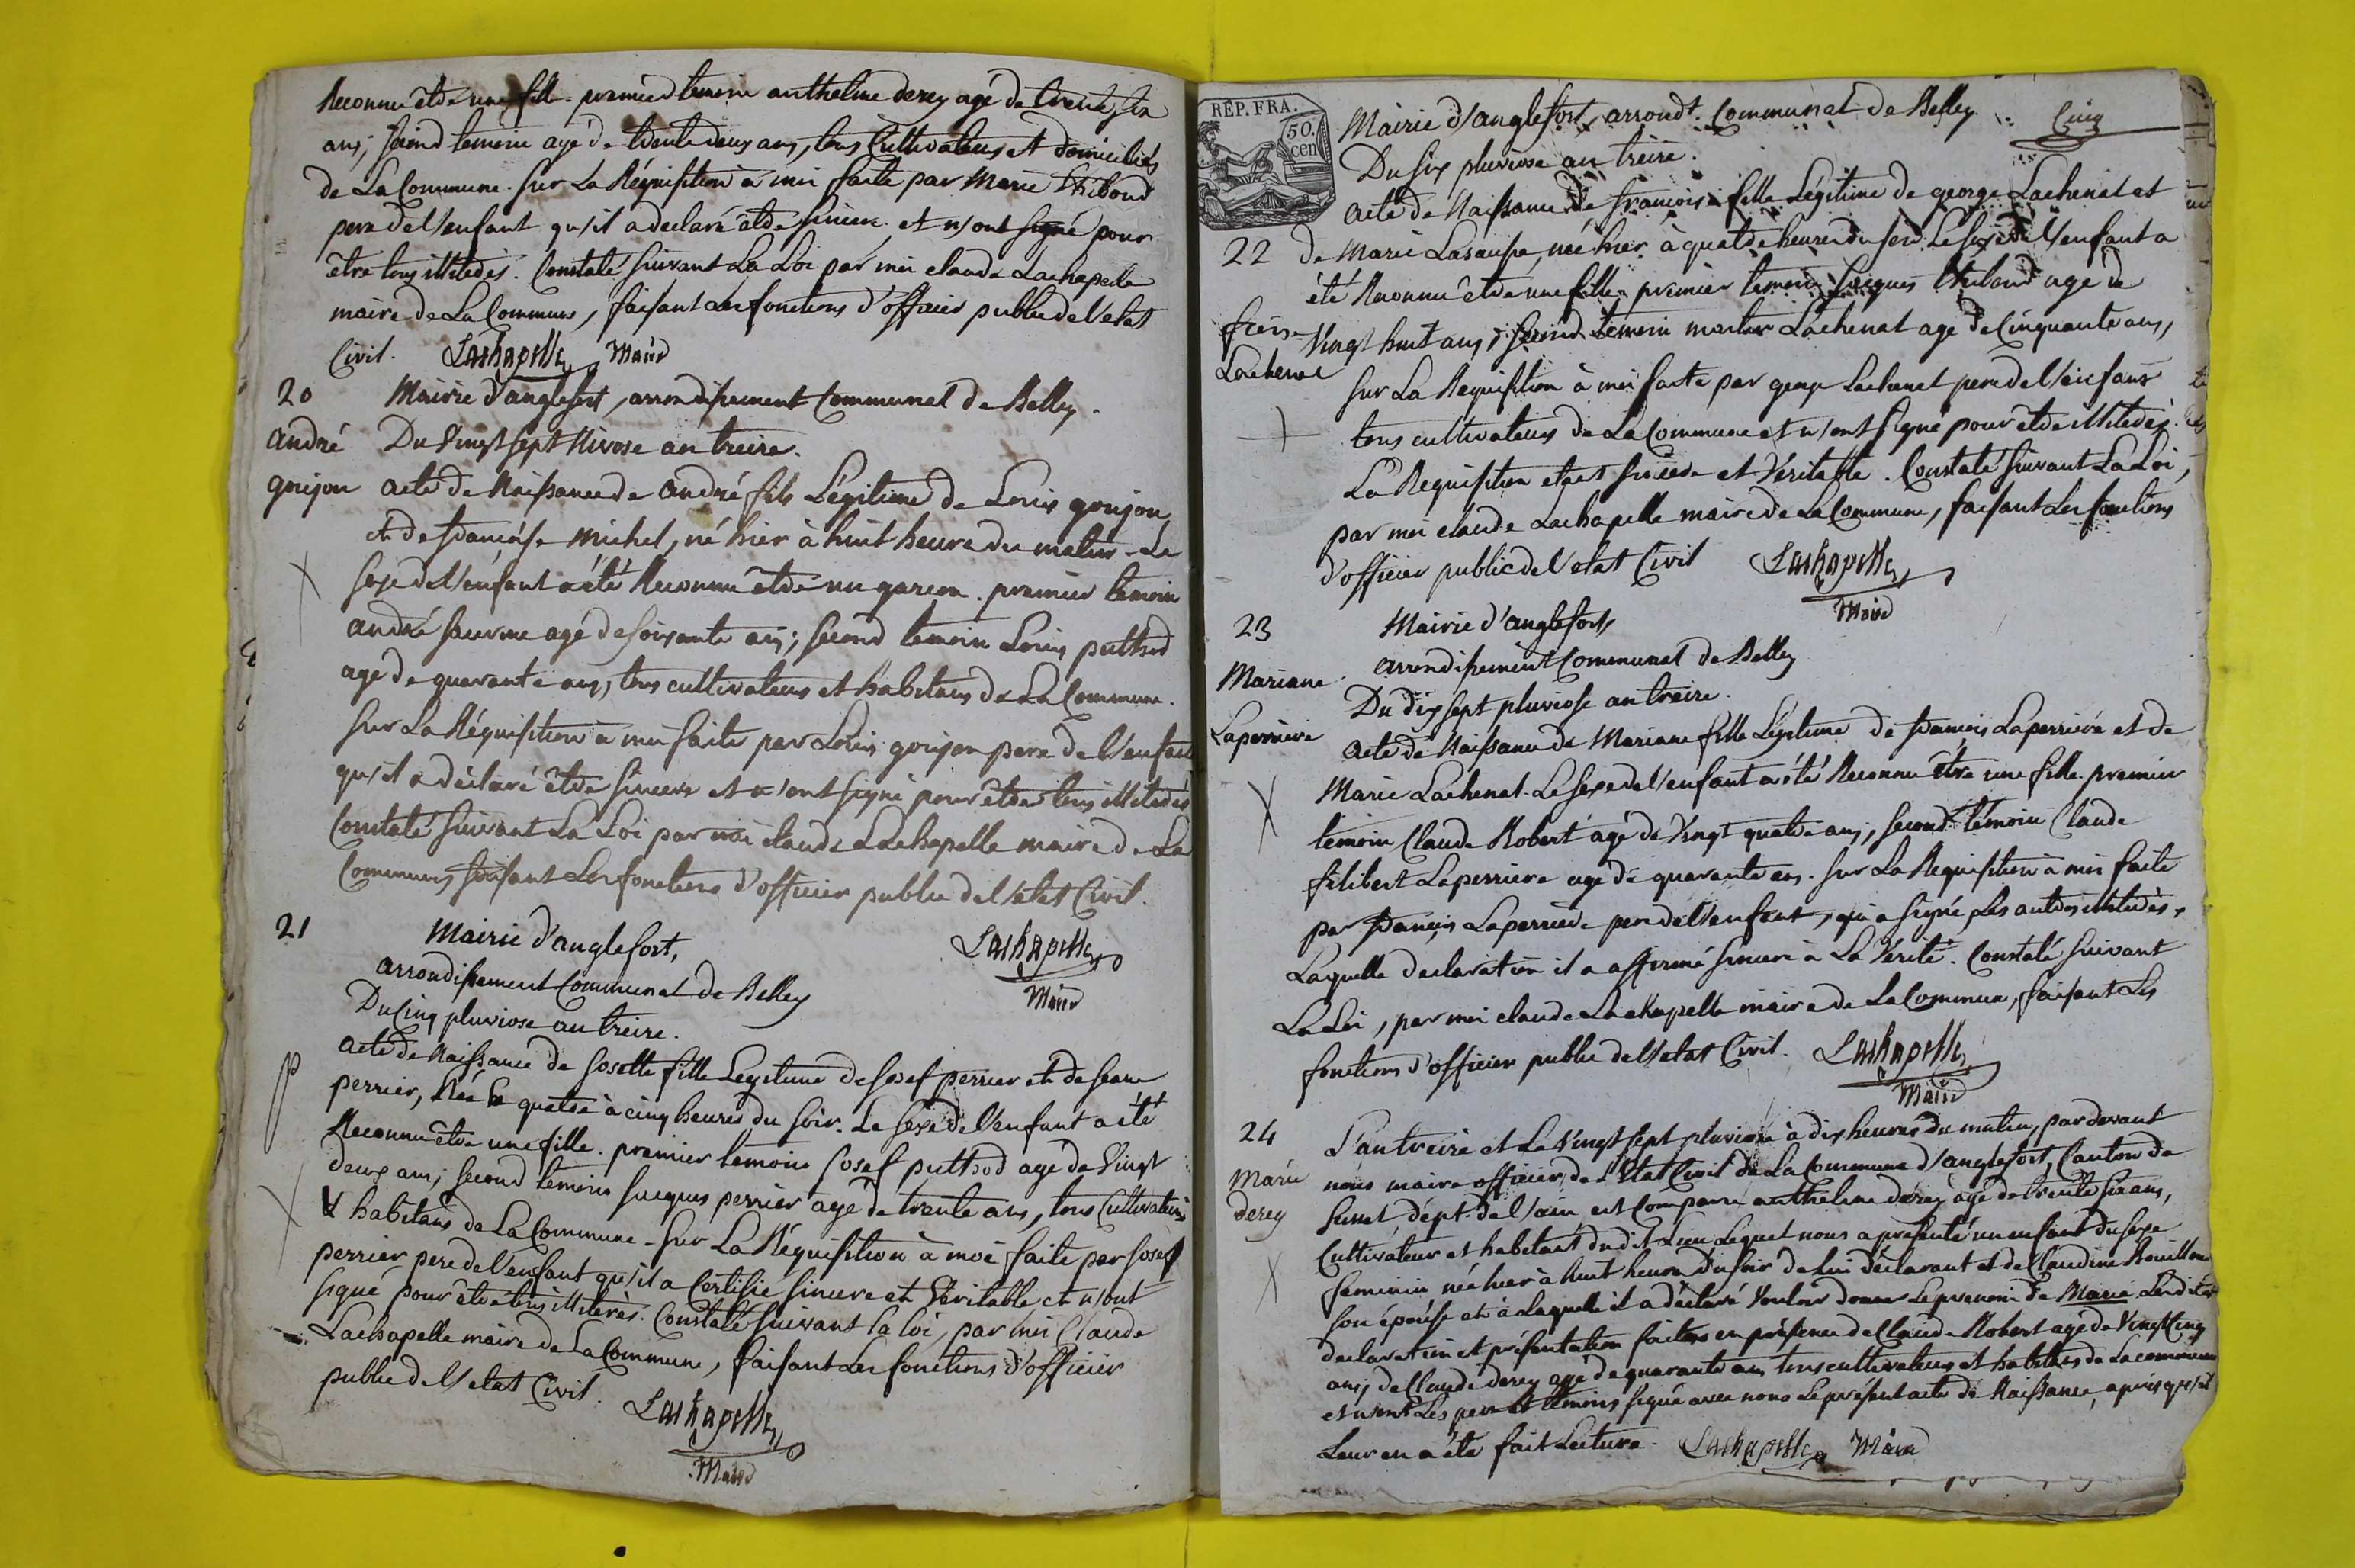 Reconnu être une fille. premier temoin anthelme derey agé de trente six
ans, second temoin agé de trente deux ans, tous Cultivateurs et domiciliés
de La Commune. sur La Réquisition à moi faite par Marie Thiboud
pere de l'enfant qu'il a declaré être sincere et n'ont signé pour
être tous illiterés. Constaté suivant La Loi par moi claude Lachapelle
maire de La Commune, faisant Les fonctions d'officier public de l'etat
Civil. Lachapelle Maire
20 Mairie d'anglefort, arrondissement Communal de Belley.
andré Du Vingt sept Nivose an treize.
goujon acte de Naissance de andré fils Légitime de Louis goujon
et de françoise Michel, né hier à huit heure du matin. Le
sexe de l'enfant a été Reconnu être un garcon. premier temoin
andré agé de soixante ans; second temoin Louis puthod
agé de quarante ans, tous cultivateurs et habitans de La Commune.
Sur La Réquisition à moi faite par Louis goujon pere de l'enfant
qu'il a déclaré être sincere et n'ont signé pour être tous illiterés
Constaté suivant La Loi par moi claude Lachapelle maire de La
Commune faisant Les fonctions d'officier public de l'etat Civil.
21 Mairie d'anglefort, Lachapelle
arrondissement Communal de Belley Maire
Du Cinq pluviose an treize.
acte de Naissance de Josette fille Legitime de Josef perrier et de Jeane
perrier, Née Le quatre à cinq heures du soir. Le sexe de l'enfant a été
Reconnu être une fille. premier temoin Josef puthod agé de Vingt
deux ans; second temoin Jacques perrier agé de trente ans, tous Cultivateurs
& habitans de La Commune. Sur La Réquisition à moi faite par Josef
perrier pere de l'enfant qu'il a Certifié sincere et Véritable et n'ont
signé pour être tous illiterés. Constaté suivant la loi, par moi Claude
Lachapelle maire de La Commune, faisant Les fonctions d'officier
public de l'etat Civil. Lachapelle
Maire
REP. FRA.
50.
cen
Mairie d'anglefort, arrondt. Communal de Belley. Cinq
Du six pluviose an treize.
acte de Naissance de françoise fille Légitime de george Lachenal et
22 de Marie Lasausse, née hier à quatre heures du soir. Le sexe de l'enfant a
été Reconnu être une fille. premier temoin Jacques Thiboud agé de
frcise Vingt huit ans, second témoin martin Lachenal agé de Cinquante ans,
Lachenal
Sur La Requisition à moi faite par george Lachenal pere de l'enfant
tous cultivateurs de La Commune et n'ont signé pour être illiterés.
La Requisition etant sincere et Véritable. Constaté suivant La Loi,
par moi claude Lachapelle maire de La Commune, faisant Les fonctions
d'officier public de l'etat Civil Lachapelle
Maire
23 Mairie d'anglefort,
arrondissement Communal de Belley
Mariane Du dix sept pluviose an treize.
Laperriere acte de Naissance de Mariane fille Légitime de françois Laperriere et de
Marie Lachenal. Le sexe de l'enfant a été Reconnu être une fille. premier
temoin Claude Robert agé de Vingt quatre ans, second témoin Claude
filibert Laperriere agé de quarante ans. sur La Requisition à moi faite
par françois Laperriere pere de l'enfant, qui a signé, Les autres illiterés,
Laquelle declaration il a affirmé sincere à La Vérité. Constaté suivant
La Loi, par moi claude Lachapelle maire de La Commune, faisant Les
fonctions d'officier public de l'etat Civil. Lachapelle
Maire
24 L'an treize et Le Vingt sept pluviose à dix heures du matin, pardevant
Marie nous maire officier de l'Etat Civil de La Commune d'anglefort, Canton de
derey Seissel, dépt. de l'ain est Comparu anthelme derey agé de trente six ans,
Cultivateur et habitant dudit Lieu Lequel nous a présenté un enfant du sexe
feminin née hier à huit heure du soir de lui déclarant et de Claudine Bouillon
son épouse et à Laquelle il a déclaré Vouloir donner Le prenom de Marie Lesdites
declaration et présentation faites en présence de Claude Robert agé de Vingt Cinq
ans, de Claude derey agé de quarante ans tous cultivateurs et habitans de La commune
et n'ont Les pere et témoins signé avec nous Le présent acte de Naissance, après qu'il
Leur en a été fait Lecture. Lachapelle Maire